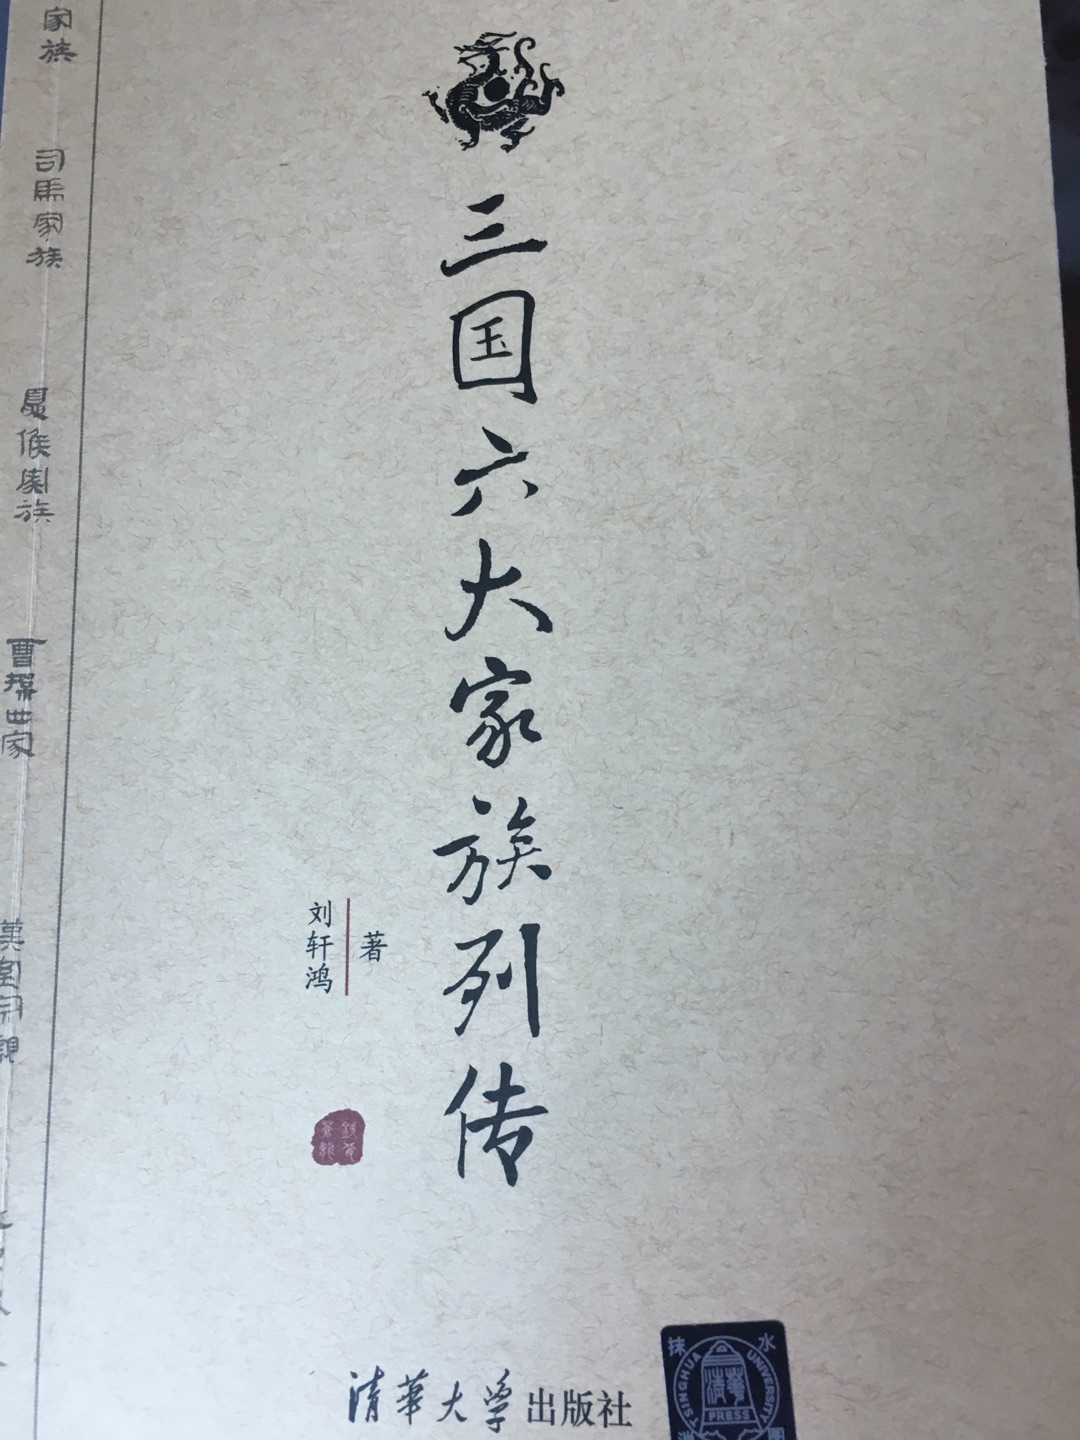 三国六大家族列传
刘轩鸿
著
清華大学出版社
家族
司馬家族
夏侯家族
曹操世家
水
抹
TSINGHUA
UNIVERSITY
清華
PRESS